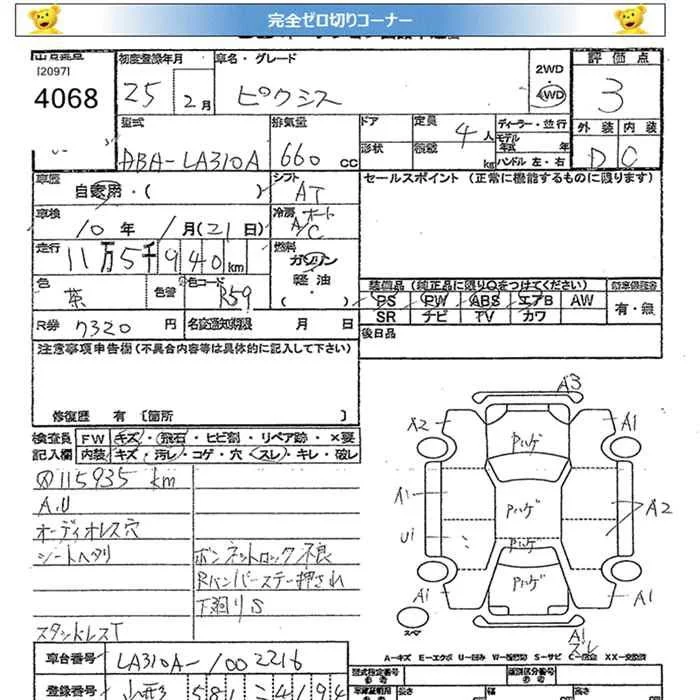 完全ゼロ切りコーナー
[2097]
4068
初度登録年月
25 2月
車名・グレード
ピクシス
2WD
4WD
評価点
3
外装 内装
D C
型式
ABA-LA310A
排気量
660 cc
ドア
形状
定員
4人
積載
kg
ディーラー・並行
モデル年式 年
ハンドル 左・右
車歴
自家用・( )
シフト
AT
セールスポイント(正常に機能するものに限ります)
車検
10年 1月(21日)
冷房
オート
A/C
走行
11万5千940km
燃料
ガソリン
軽油・
( )
色
茶
色替
色コード
R59
装備品(純正品に限り○をつけてください)
PS PW ABS エアB AW
SR ナビ TV カワ
有・無
R券 7320 円
名変通知期限 月 日
後日品
注意事項申告欄(不具合内容等は具体的に記入して下さい)
修復歴 有〔箇所 〕
検査員 FW キズ・飛石・ヒビ割・リペア跡・×要
記入欄 内装 キズ・汚レ・コゲ・穴・スレ・キレ・破レ
115935 km
A.U
オーディオレス穴
シートヘタリ
ボンネットロック不良
Rバンパーステー押され
下廻りS
スタッドレスT
A3
A2
A1
Pハゲ
A1
Pハゲ
A2
U1
Pハゲ
Pハゲ
A1
A1
スペア
A1
スレ
A-キズ E-エクボ U-凹み W-補修跡 S-サビ C-腐食 XX-交換済
車台番号 LA310A-1002216
登録番号 581-4194
型式指定番号
類別区分番号
長さ 幅 高さ